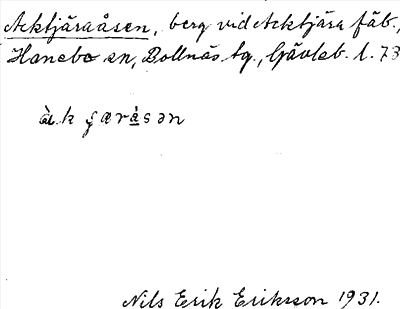 Acktjäraåsen, berg vid Acktjära fäb.,
Hanebo sn, Bollnäs tg., Gävleb. l. 73
àk ʒærå̀sən
Nils Erik Eriksson 1931.